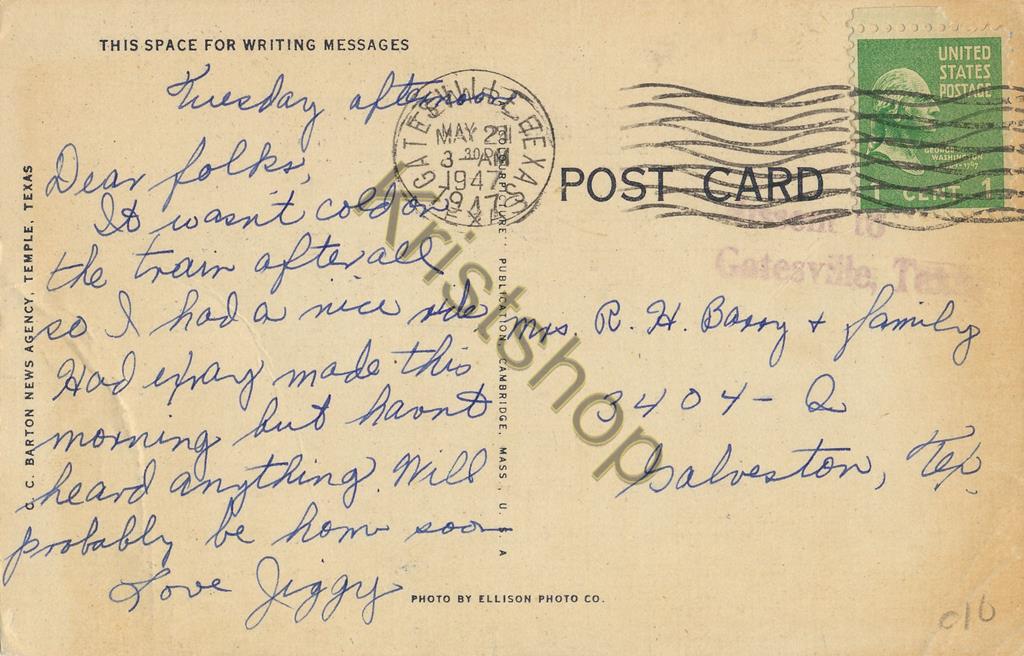 THIS SPACE FOR WRITING MESSAGES
Tuesday afternoon
Dear folks,
It wasn't cold on
the train after all
so I had a nice ride
Had exray made this
morning but havnt
heard anything. Will
probably be home soon
Love Jiggy
C. C. BARTON NEWS AGENCY, TEMPLE, TEXAS
GATESVILLE TEXAS
MAY
3
1947
POST CARD
UNITED
STATES
POSTAGE
GEORGE
WASHINGTON
1 CENT 1
to
Gatesville, Texas
Mrs. R. H. Barry + family
3404 - Q
Galveston, Tex.
PUBLICATION, CAMBRIDGE, MASS., U. S. A
PHOTO BY ELLISON PHOTO CO.
Kristshop
010